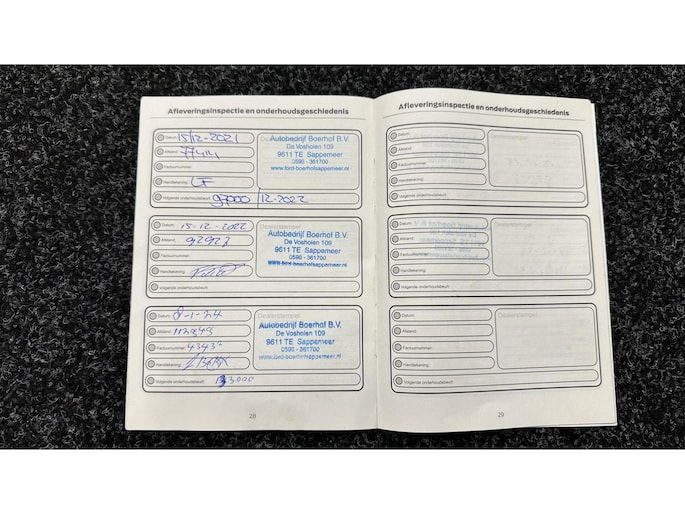 Afleveringsinspectie en onderhoudsgeschiedenis
Datum: 15/12-2021
Afstand: 77414
Factuurnummer:
Handtekening:
Volgende onderhoudsbeurt: 97000 /12-2022
Autobedrijf Boerhof B.V.
De Vosholen 109
9611 TE Sappemeer
0598 - 361700
www.ford-boerhofsappemeer.nl
Datum: 15-12-2022
Afstand: 92923
Factuurnummer:
Handtekening:
Volgende onderhoudsbeurt:
Dealerstempel
Autobedrijf Boerhof B.V.
De Vosholen 109
9611 TE Sappemeer
0598 - 361700
www.ford-boerhofsappemeer.nl
Datum: 8-1-24
Afstand:
Factuurnummer:
Handtekening:
Volgende onderhoudsbeurt:
Dealerstempel
Autobedrijf Boerhof B.V.
De Vosholen 109
9611 TE Sappemeer
0598 - 361700
www.ford-boerhofsappemeer.nl
28
Afleveringsinspectie en onderhoudsgeschiedenis
Datum:
Afstand:
Factuurnummer:
Handtekening:
Volgende onderhoudsbeurt:
Dealerstempel
Datum:
Afstand:
Factuurnummer:
Handtekening:
Volgende onderhoudsbeurt:
Dealerstempel
Datum:
Afstand:
Factuurnummer:
Handtekening:
Volgende onderhoudsbeurt:
Dealerstempel
29